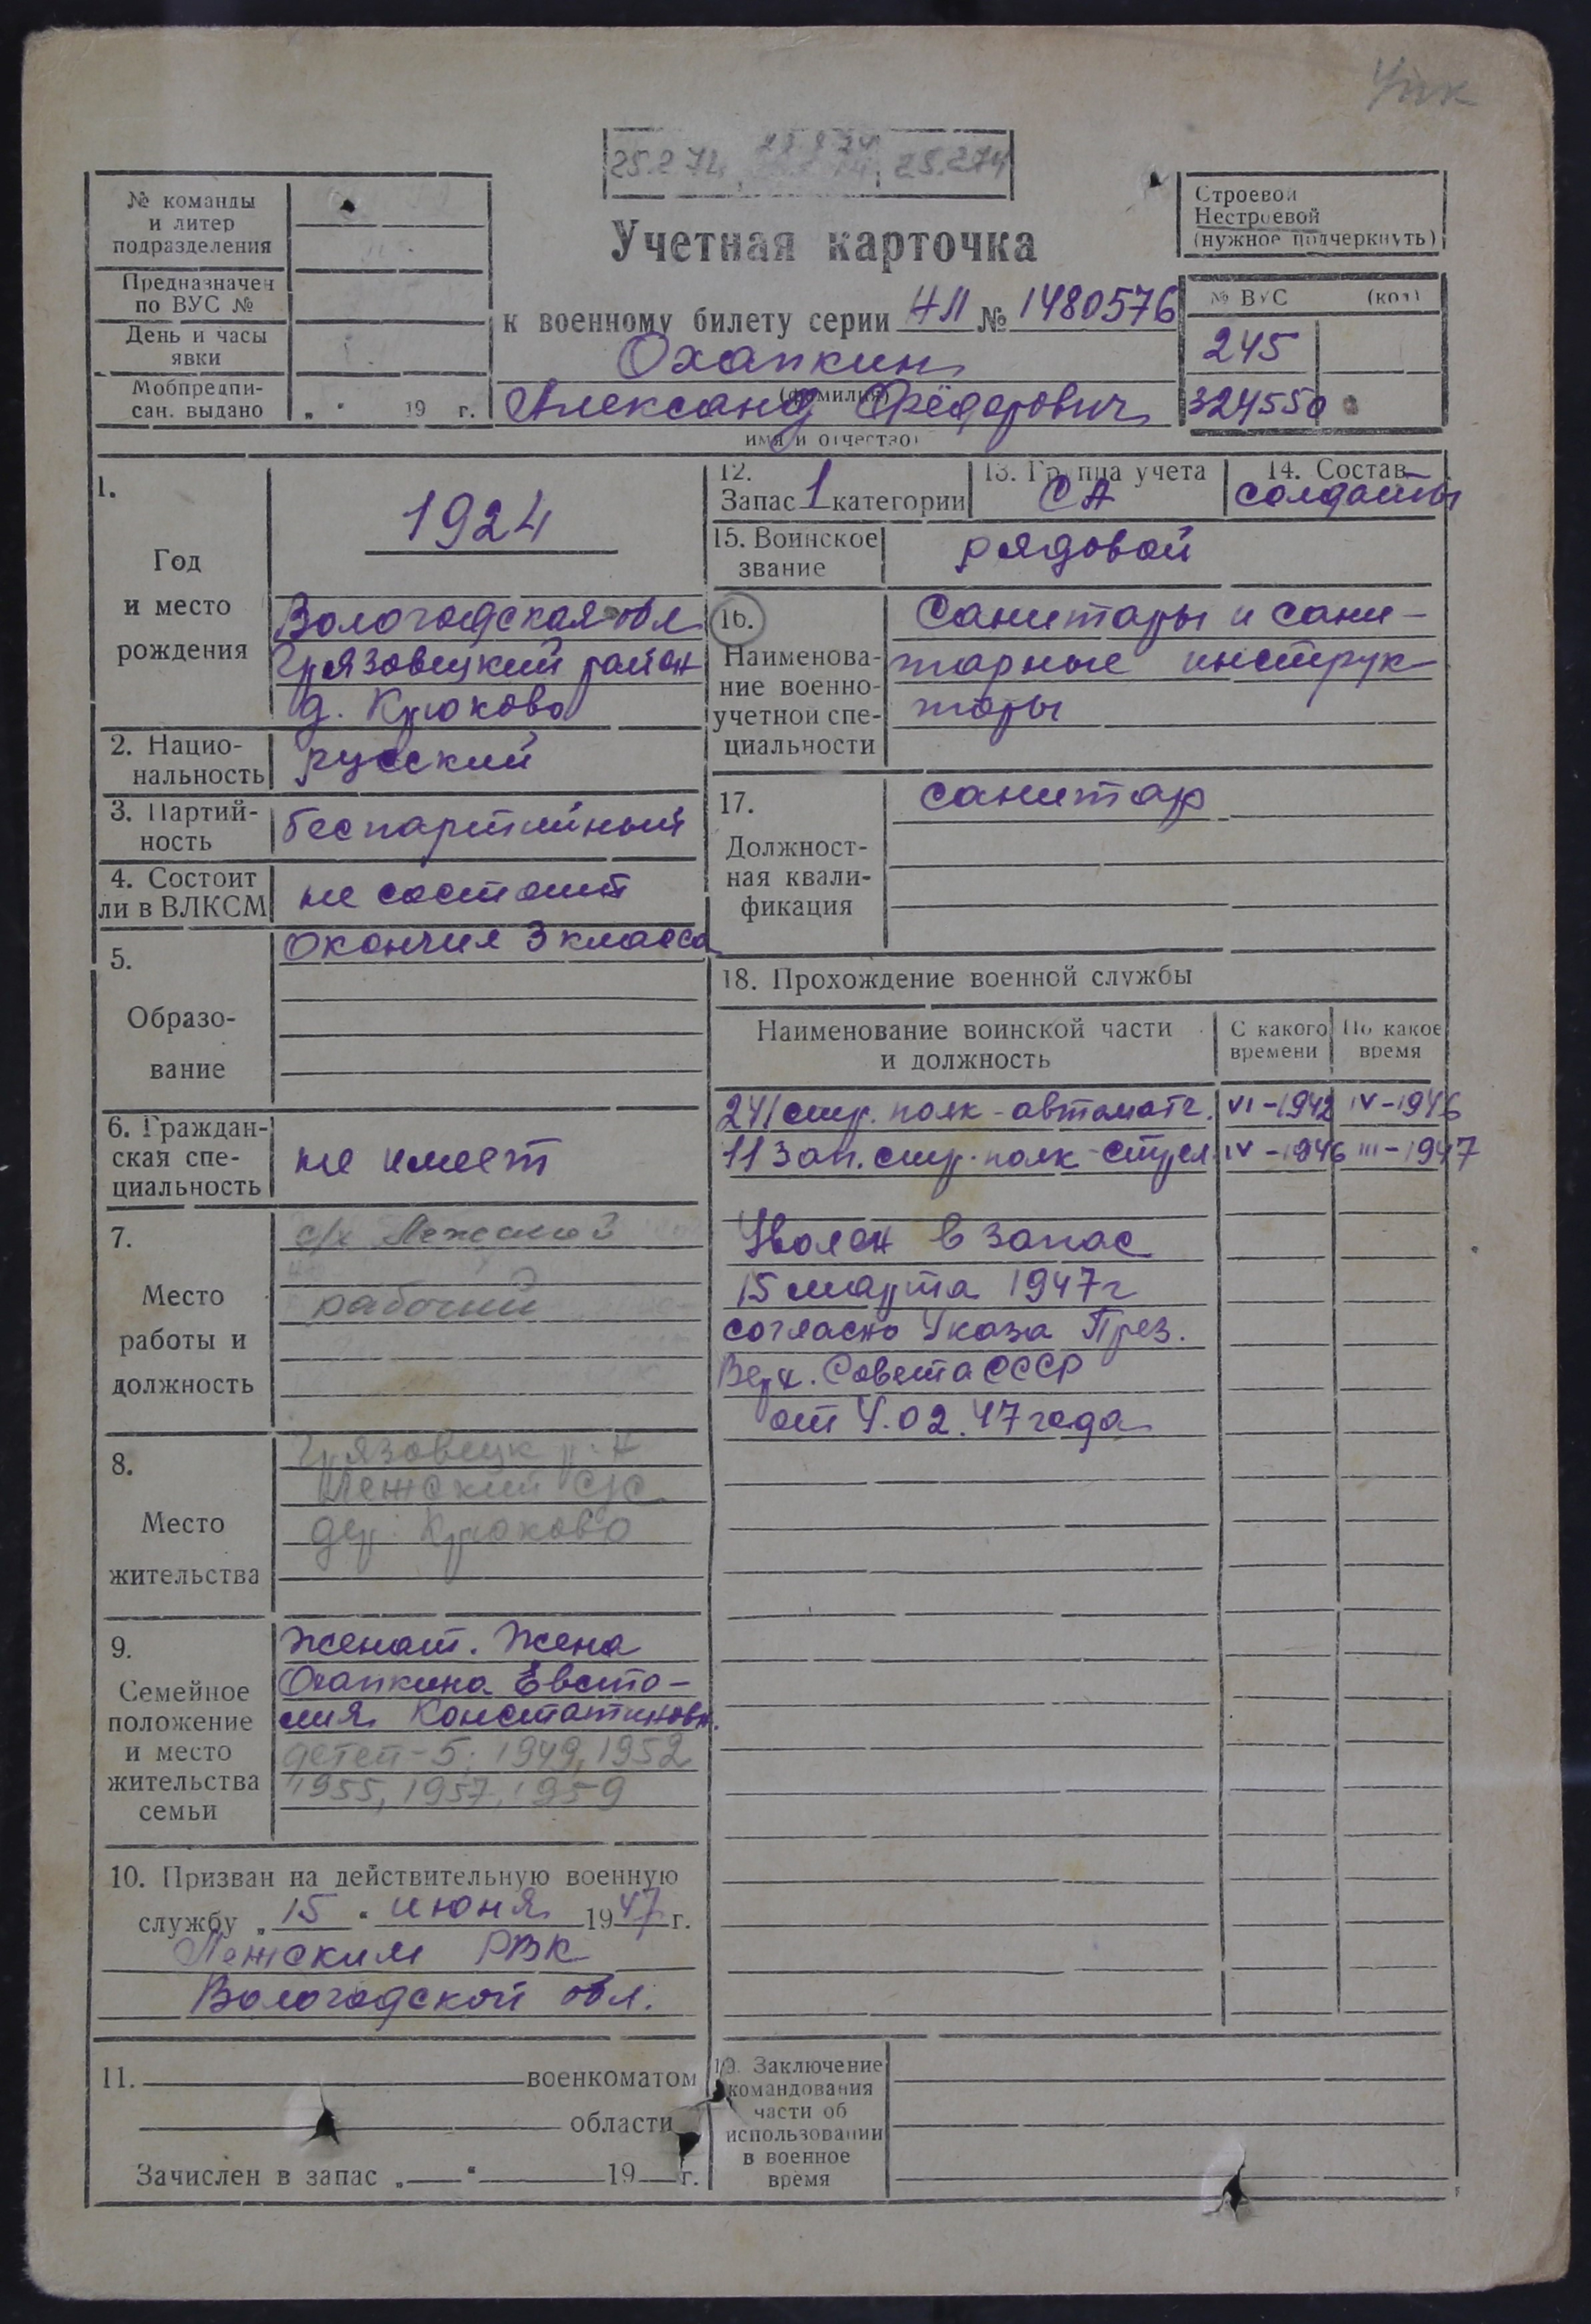 25.2.72 25.2.74
№ команды
и литер
подразделения
Предназначен
по ВУС №
День и часы
явки
Мобпредпи-
сан. выдано „ " 19 г.
Учетная карточка
к военному билету серии НЛ № 1480576
Охапкин
(фамилия)
Александ Фёдорович
имя и отчество
Строевой
Нестроевой
(нужное подчеркнуть)
№ ВУС (код)
245
324550
1.
Год
и место
рождения
1924
Вологодская обл
Грязовецкий район
д. Крюково
2. Нацио-
нальность
русский
3. Партий-
ность
беспартийный
4. Состоит
ли в ВЛКСМ
не состоит
5.
Образо-
вание
Окончил 3 класса
6. Граждан-
ская спе-
циальность
не имеет
7.
Место
работы и
должность
с/х
рабочий
8.
Место
жительства
Грязовецк р-н
Лежский с/с
дер. Крюково
9.
Семейное
положение
и место
жительства
семьи
Женат. Жена
Охапкина Евсто-
лия Констатиновн.
детей-5: 1949, 1952
1955, 1957, 1959
10. Призван на действительную военную
службу „ 15 " июня 1947 г.
Лежским РВК
Вологодской обл.
11. военкоматом
области
Зачислен в запас „ " 19 г.
12.
Запас 1 категории
13. Группа учета
СА
14. Состав
солдаты
15. Воинское
звание
рядовой
16.
Наименова-
ние военно-
учетной спе-
циальности
Санитары и сани-
тарные инструк-
торы
17.
Должност-
ная квали-
фикация
санитар
18. Прохождение военной службы
Наименование воинской части
и должность
С какого
времени
По какое
время
241 стр. полк - автоматч. VI-1942 IV-1946
11 зап. стр. полк - стрел. IV-1946 III-1947
Уволен в запас
15 марта 1947 г
согласно Указа През.
Верх. Совета СССР
от 4.02.47 года
19. Заключение
командования
части об
использовании
в военное
время